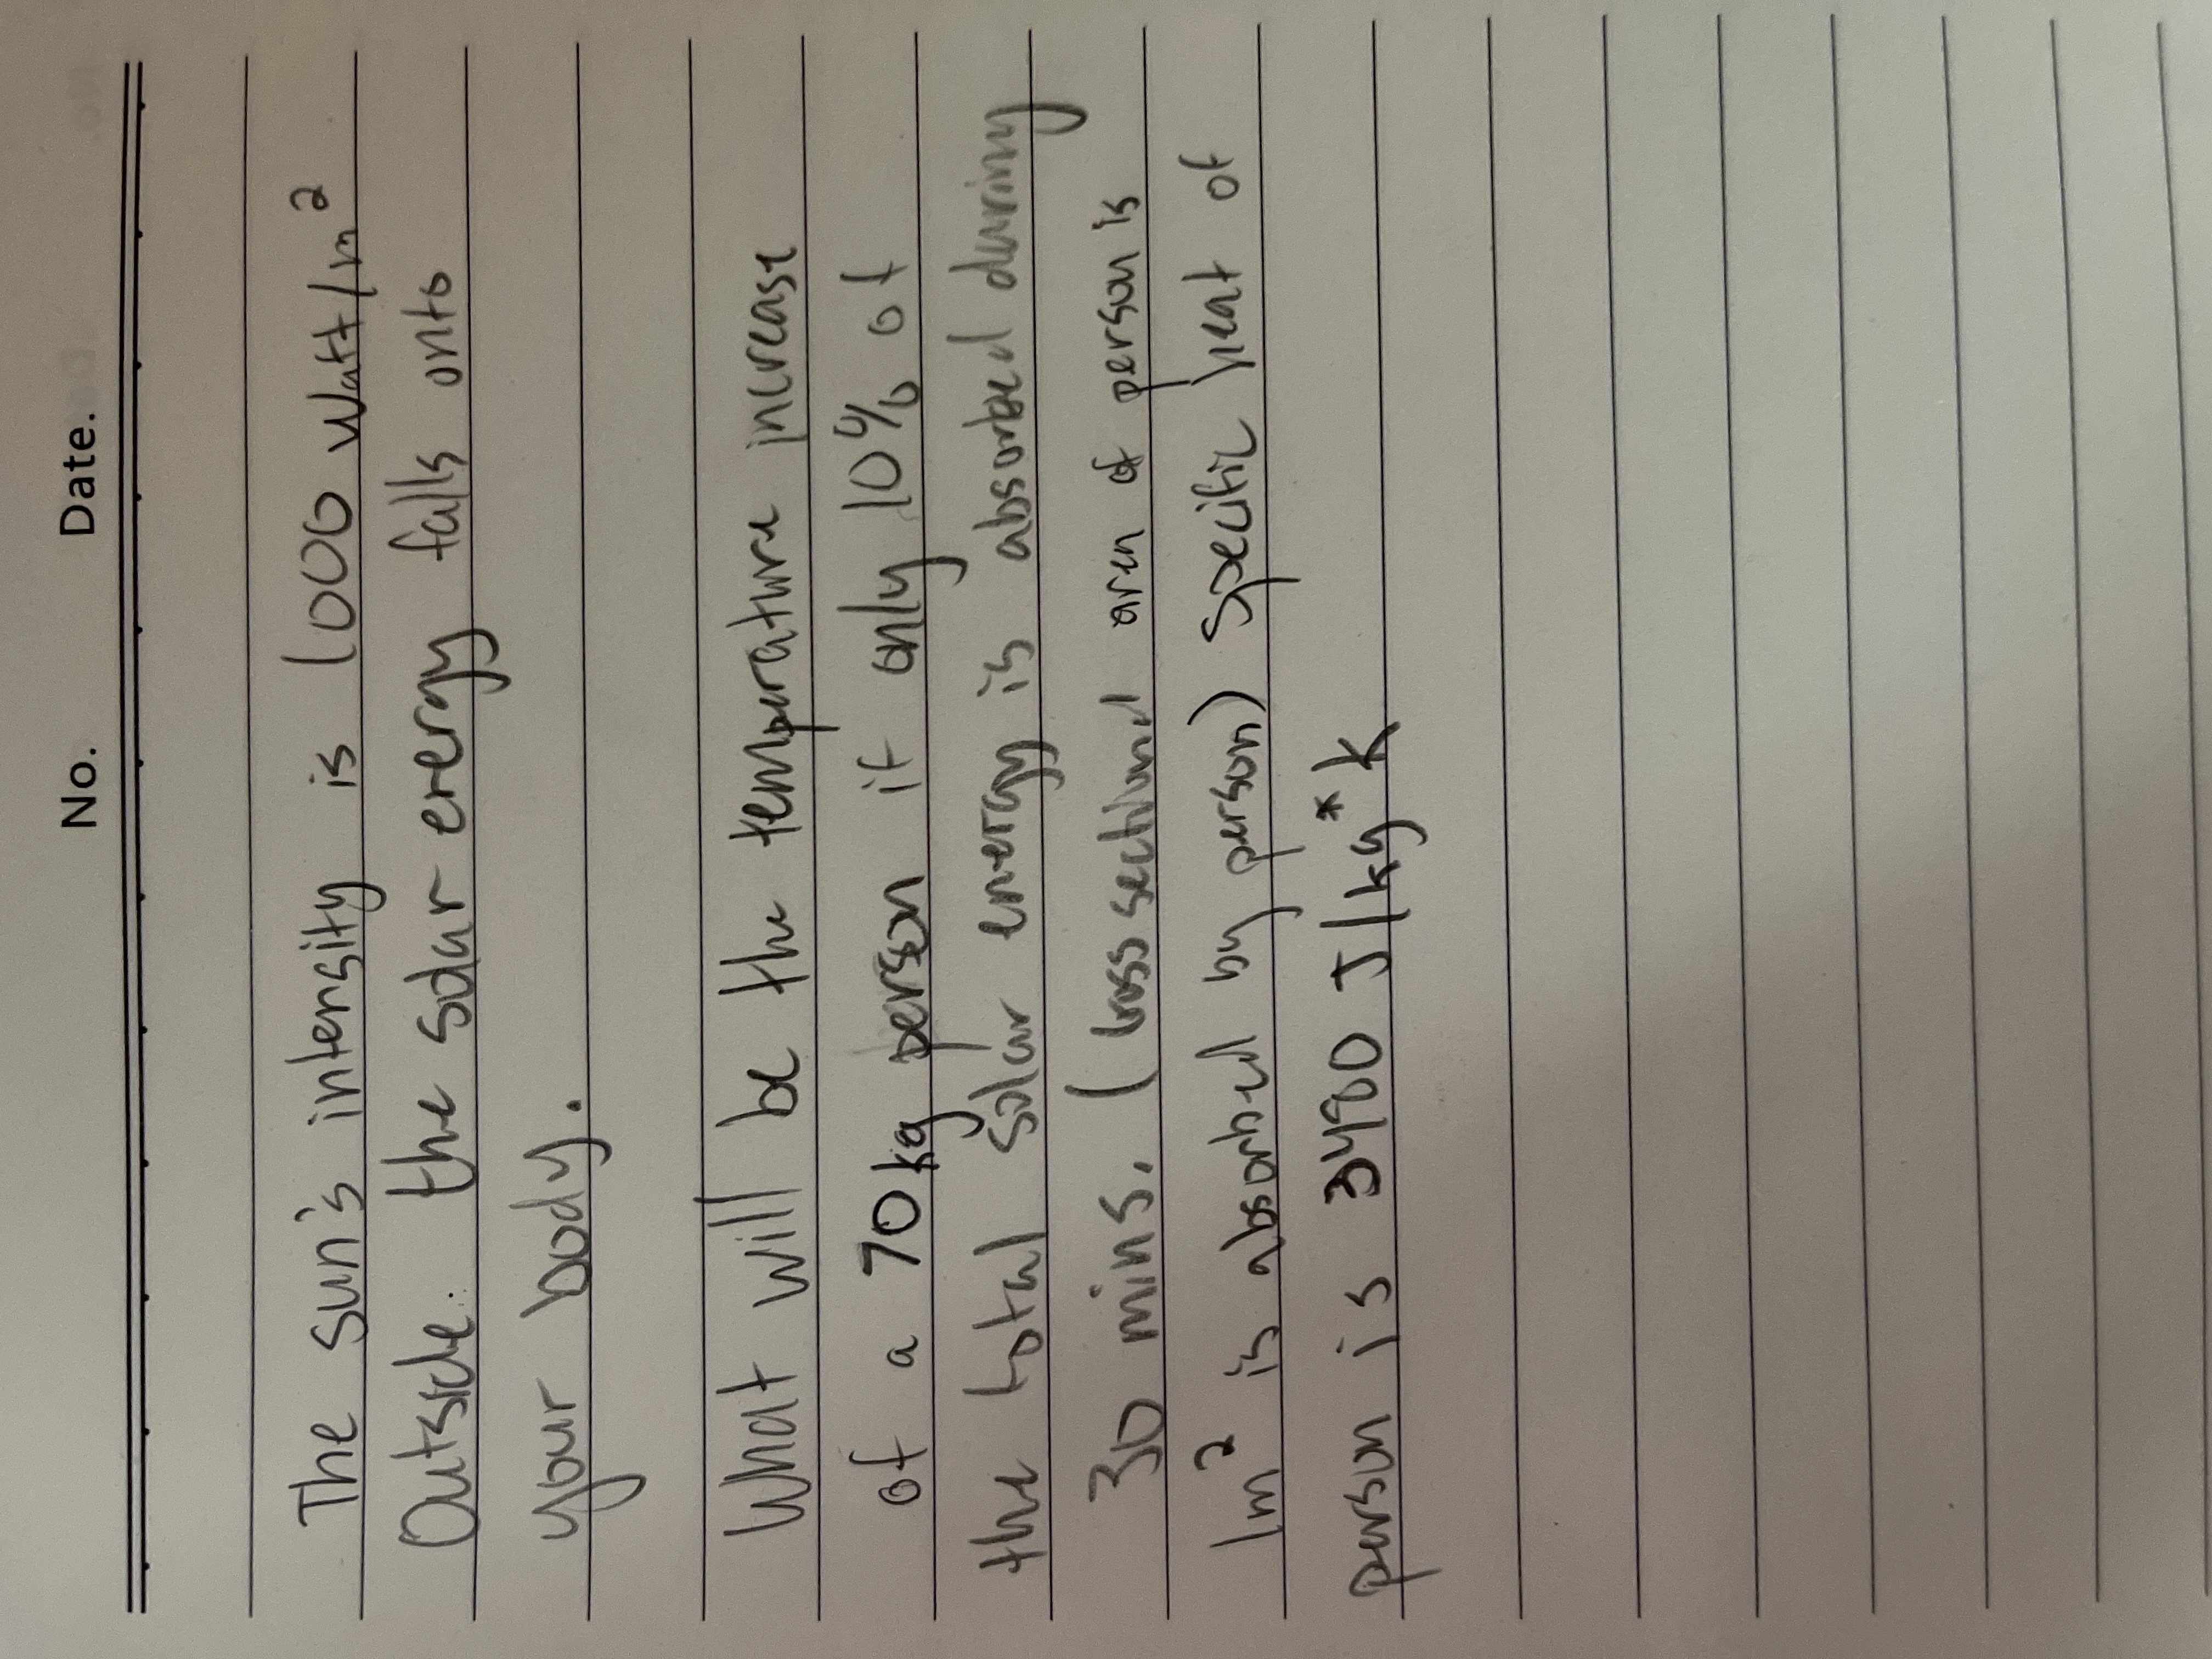 No. Date.
The sun's intensity is 1000 Watt/m²
Outside. the solar energy falls onto
your body.
What will be the temperature increase
of a 70kg person if only 10% of
the total solar energy is absorbed during
30 mins. (Cross sectional area of person is
1m² is absorbed by person) Specific heat of
person is 3480 J/kg*k